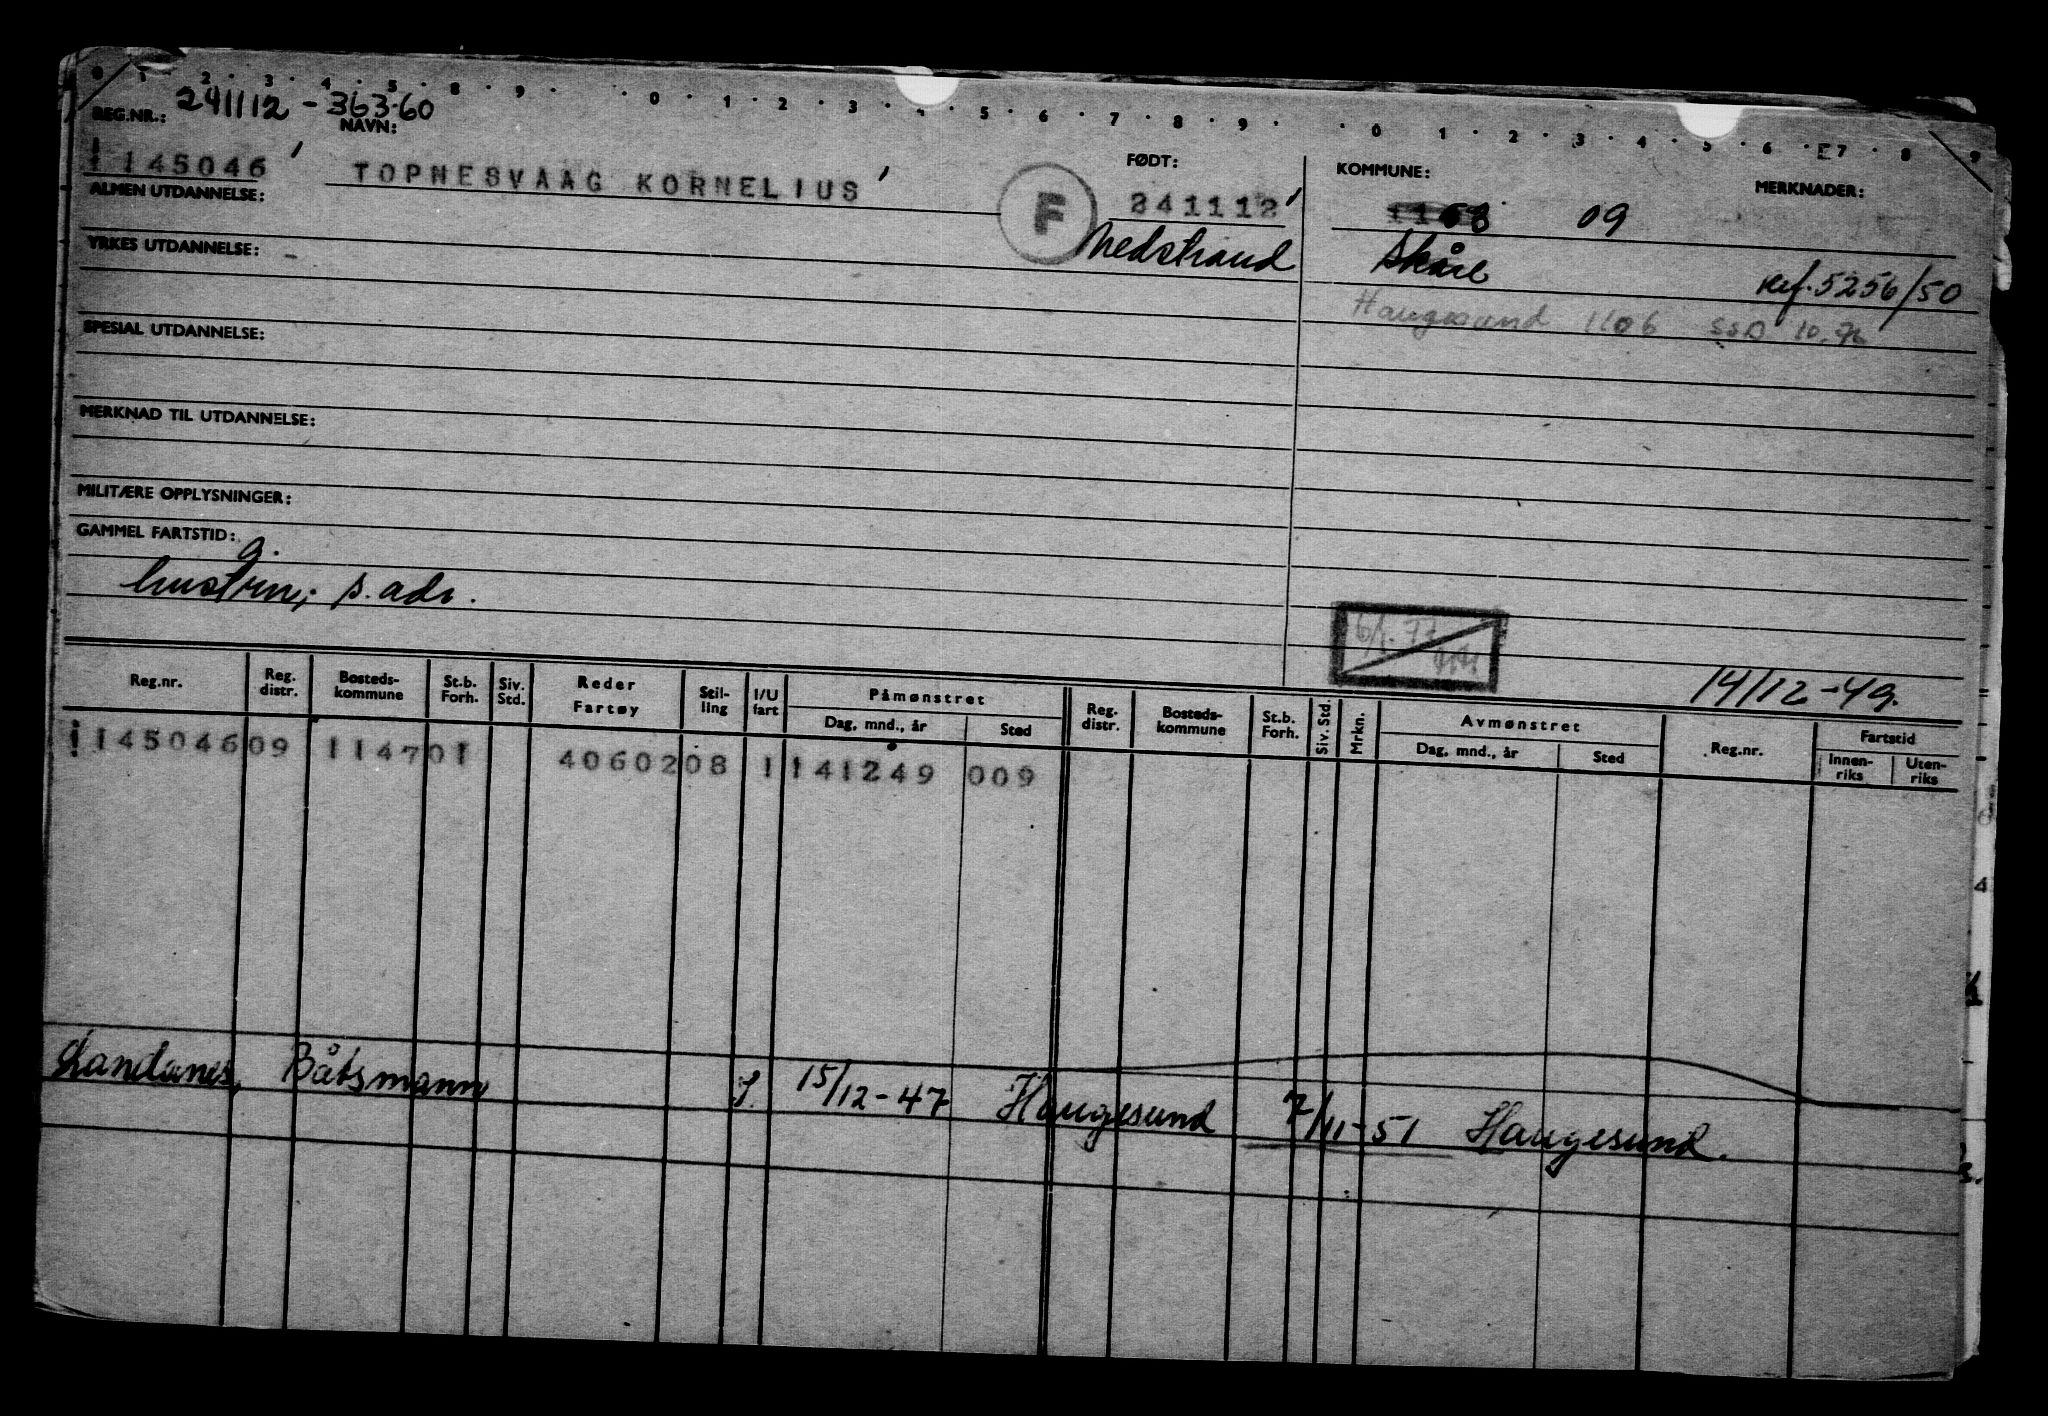 0 · 1 · 2 · 3 · 4 · 5 · 8 · 9 · · 0 · 1 · 2 · 3 · 4 · 5 · 6 · 7 · 8 · 9 · · 0 · 1 · 2 · 3 · 4 · 5 · 6 · E7 · 8 · 9
REG.NR.: 241112 - 363.60
NAVN: FØDT: KOMMUNE: MERKNADER:
1145046 TOPNESVAAG KORNELIUS F 241112 09
ALMEN UTDANNELSE:
Nedstrand Skåre Ref. 5256/50
YRKES UTDANNELSE:
Haugesund 1106 SSD 10.76
SPESIAL UTDANNELSE:
MERKNAD TIL UTDANNELSE:
MILITÆRE OPPLYSNINGER:
GAMMEL FARTSTID:
g.
hustru; s. adr.
6/1. 77
14/12-49.
Reg.nr. Reg. distr. Bosteds-kommune St.b. Forh. Siv. Std. Reder Fartøy Stil-ling I/U fart Påmønstret Dag, mnd., år Sted Reg. distr. Bosteds-kommune St.b. Forh. Siv. Std. Mrkn. Avmønstret Dag, mnd., år Sted Reg.nr. Fartstid Innen-riks Uten-riks
1145046 09 1147 01 406020 8 1 141249 009
Båtsmann 15/12-47 Haugesund 7/11-51 Haugesund.